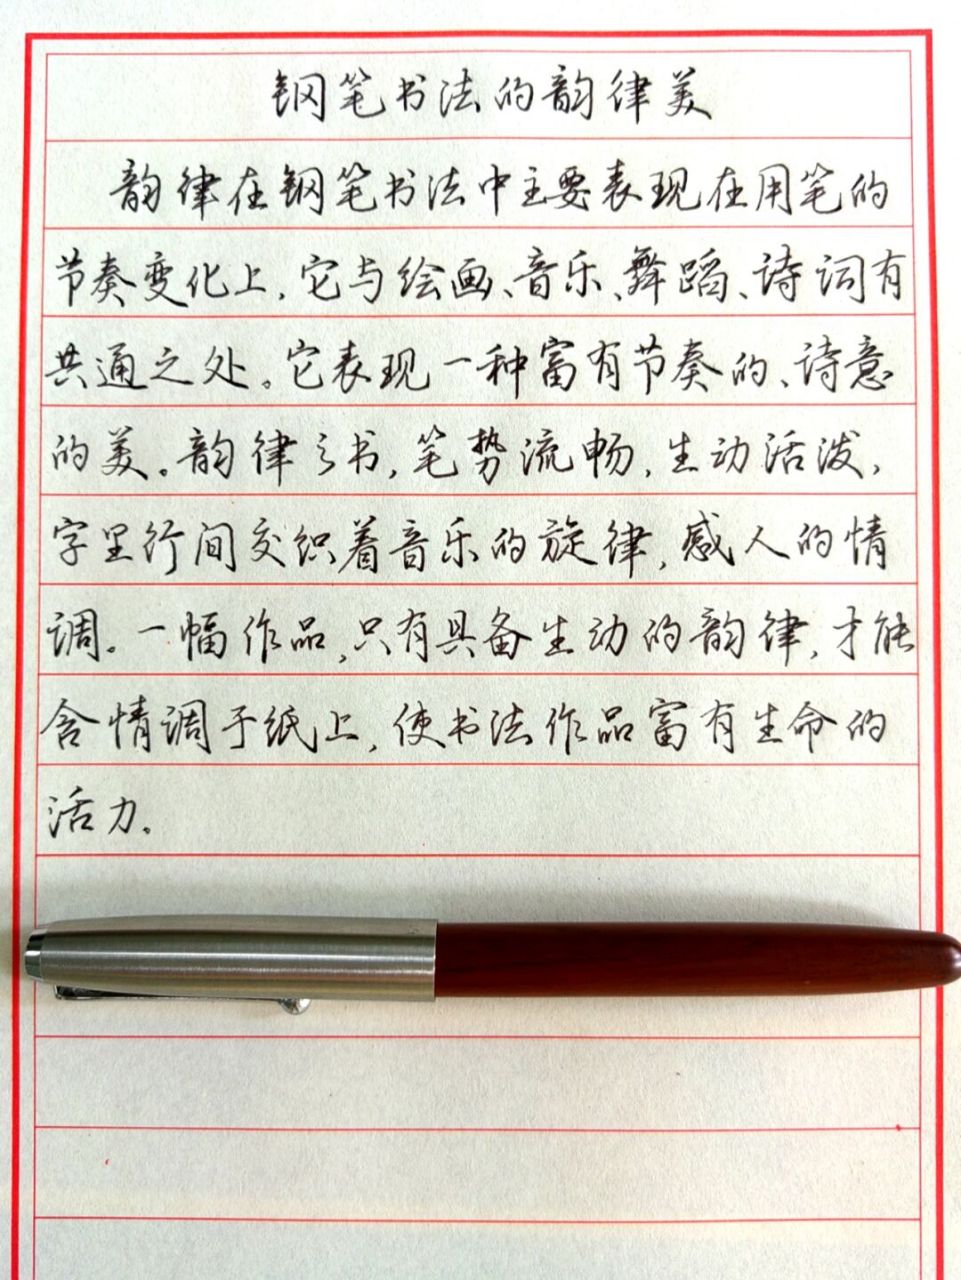 钢笔书法的韵律美
韵律在钢笔书法中主要表现在用笔的
节奏变化上，它与绘画、音乐、舞蹈、诗词有
共通之处。它表现一种富有节奏的、诗意
的美。韵律之书，笔势流畅，生动活泼，
字里行间交织着音乐的旋律，感人的情
调。一幅作品，只有具备生动的韵律，才能
含情调于纸上，使书法作品富有生命的
活力。